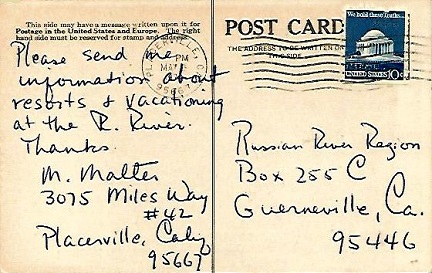 This side may have a message written upon it for
Postage in the United States and Europe. The right
hand side must be reserved for stamp and address.
Please send me
information about
resorts & vacationing
at the R. River.
Thanks.
M. Malter
3075 Miles Way
#42
Placerville, Calif
95667
POST CARD
THE ADDRESS TO BE WRITTEN ON
THIS SIDE
PLACERVILLE, CA
PM
MA
95667
We hold these Truths...
UNITED STATES 10c
Russian River Region
Box 255 C
Guerneville, Ca.
95446